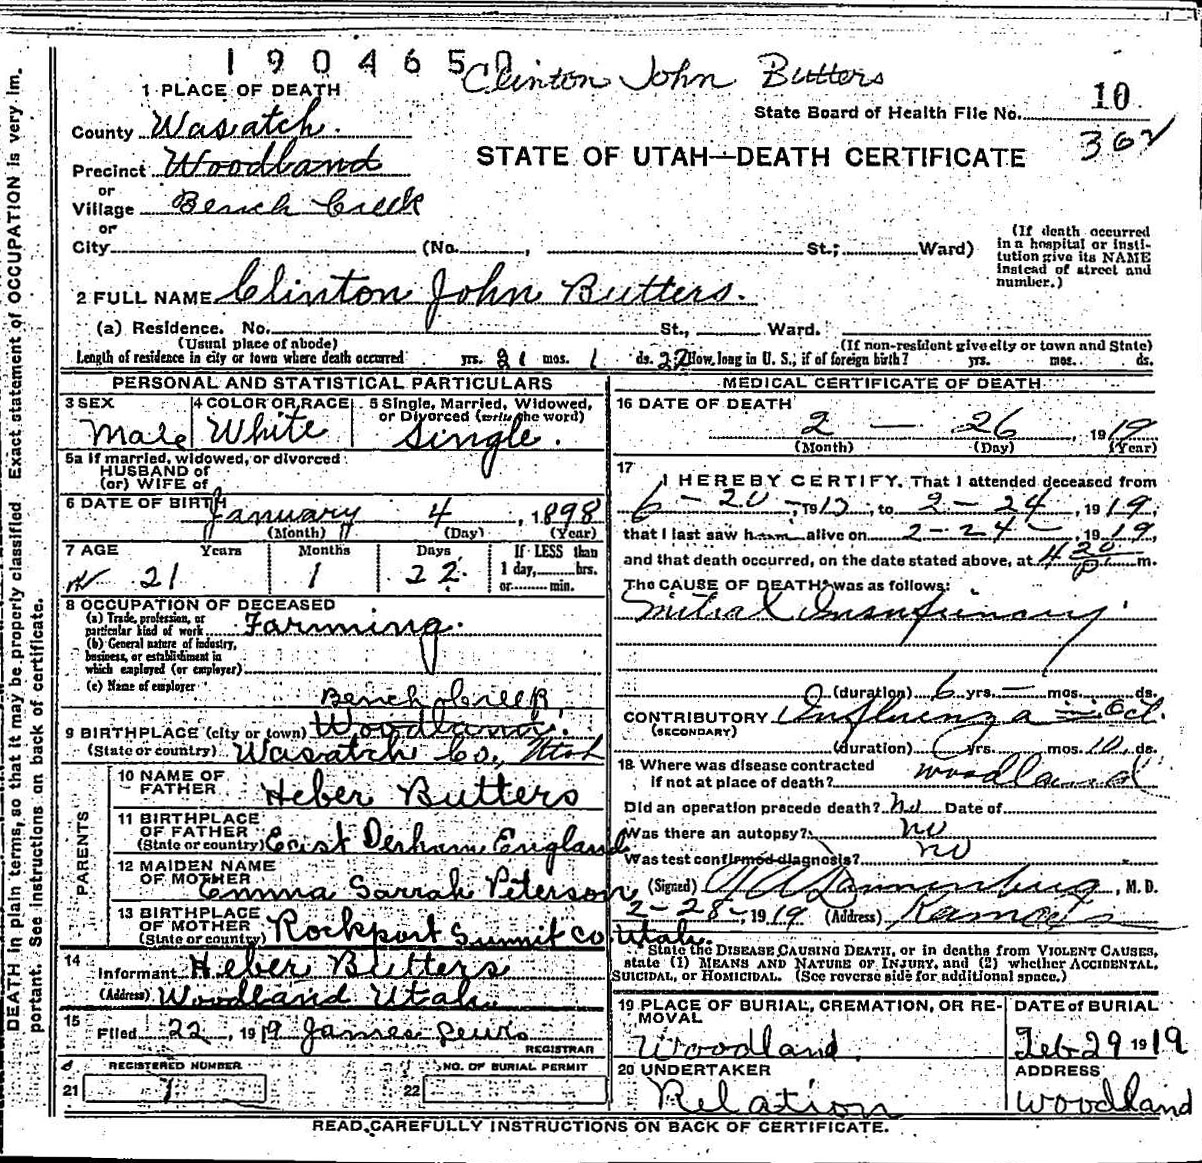 190465
Clinton John Butters
1 PLACE OF DEATH
State Board of Health File No. 10
362
County Wasatch.
STATE OF UTAH—DEATH CERTIFICATE
Precinct Woodland
or
Village Bench Creek
or
City (No. , St.; Ward)
(If death occurred in a hospital or institution give its NAME instead of street and number.)
2 FULL NAME Clinton John Butters.
(a) Residence. No. St., Ward.
(Usual place of abode) (If non-resident give city or town and State)
Length of residence in city or town where death occurred yrs. 21 mos. 1 ds. 22 How long in U. S., if of foreign birth? yrs. mos. ds.
PERSONAL AND STATISTICAL PARTICULARS
3 SEX Male
4 COLOR OR RACE White
5 Single, Married, Widowed, or Divorced (write the word) Single.
5a If married, widowed, or divorced
HUSBAND of
(or) WIFE of
6 DATE OF BIRTH January 4, 1898
(Month) (Day) (Year)
7 AGE Years Months Days If LESS than
21 1 22 1 day, hrs.
or min.
8 OCCUPATION OF DECEASED
(a) Trade, profession, or
particular kind of work Farming.
(b) General nature of industry,
business, or establishment in
which employed (or employer)
(c) Name of employer
Bench Creek
9 BIRTHPLACE (city or town) Woodland.
(State or country) Wasatch Co., Utah
PARENTS
10 NAME OF FATHER Heber Butters
11 BIRTHPLACE OF FATHER
(State or country) East Derham England
12 MAIDEN NAME OF MOTHER Emma Sarrah Peterson
13 BIRTHPLACE OF MOTHER
(State or country) Rockport Summit Co Utah.
14
Informant Heber Butters
(Address) Woodland Utah.
15
Filed 22, 1919 James Lewis
REGISTRAR
REGISTERED NUMBER
21 1
NO. OF BURIAL PERMIT
22
MEDICAL CERTIFICATE OF DEATH
16 DATE OF DEATH
2 — 26, 1919
(Month) (Day) (Year)
17
I HEREBY CERTIFY, That I attended deceased from
6-20-1913, to 2-24, 1919,
that I last saw him alive on 2-24-, 1919,
and that death occurred, on the date stated above, at 4 20 P m.
The CAUSE OF DEATH was as follows:
Mitral Insufficiency.
(duration) 6 yrs. — mos. ds.
CONTRIBUTORY Influenza — Oct.
(SECONDARY)
(duration) yrs. mos. 10 ds.
18 Where was disease contracted
if not at place of death? Woodland
Did an operation precede death? No Date of
Was there an autopsy? No
Was test confirmed diagnosis? No
(Signed) , M. D.
2-28-1919 (Address) Kamas
State the DISEASE CAUSING DEATH, or in deaths from VIOLENT CAUSES,
state (1) MEANS AND NATURE OF INJURY, and (2) whether ACCIDENTAL,
SUICIDAL, or HOMICIDAL. (See reverse side for additional space.)
19 PLACE OF BURIAL, CREMATION, OR REMOVAL
Woodland
DATE OF BURIAL
Feb 29 1919
20 UNDERTAKER
Relation
ADDRESS
Woodland
READ CAREFULLY INSTRUCTIONS ON BACK OF CERTIFICATE.
DEATH in plain terms, so that it may be properly classified. Exact statement of OCCUPATION is very im-
portant. See instructions on back of certificate.